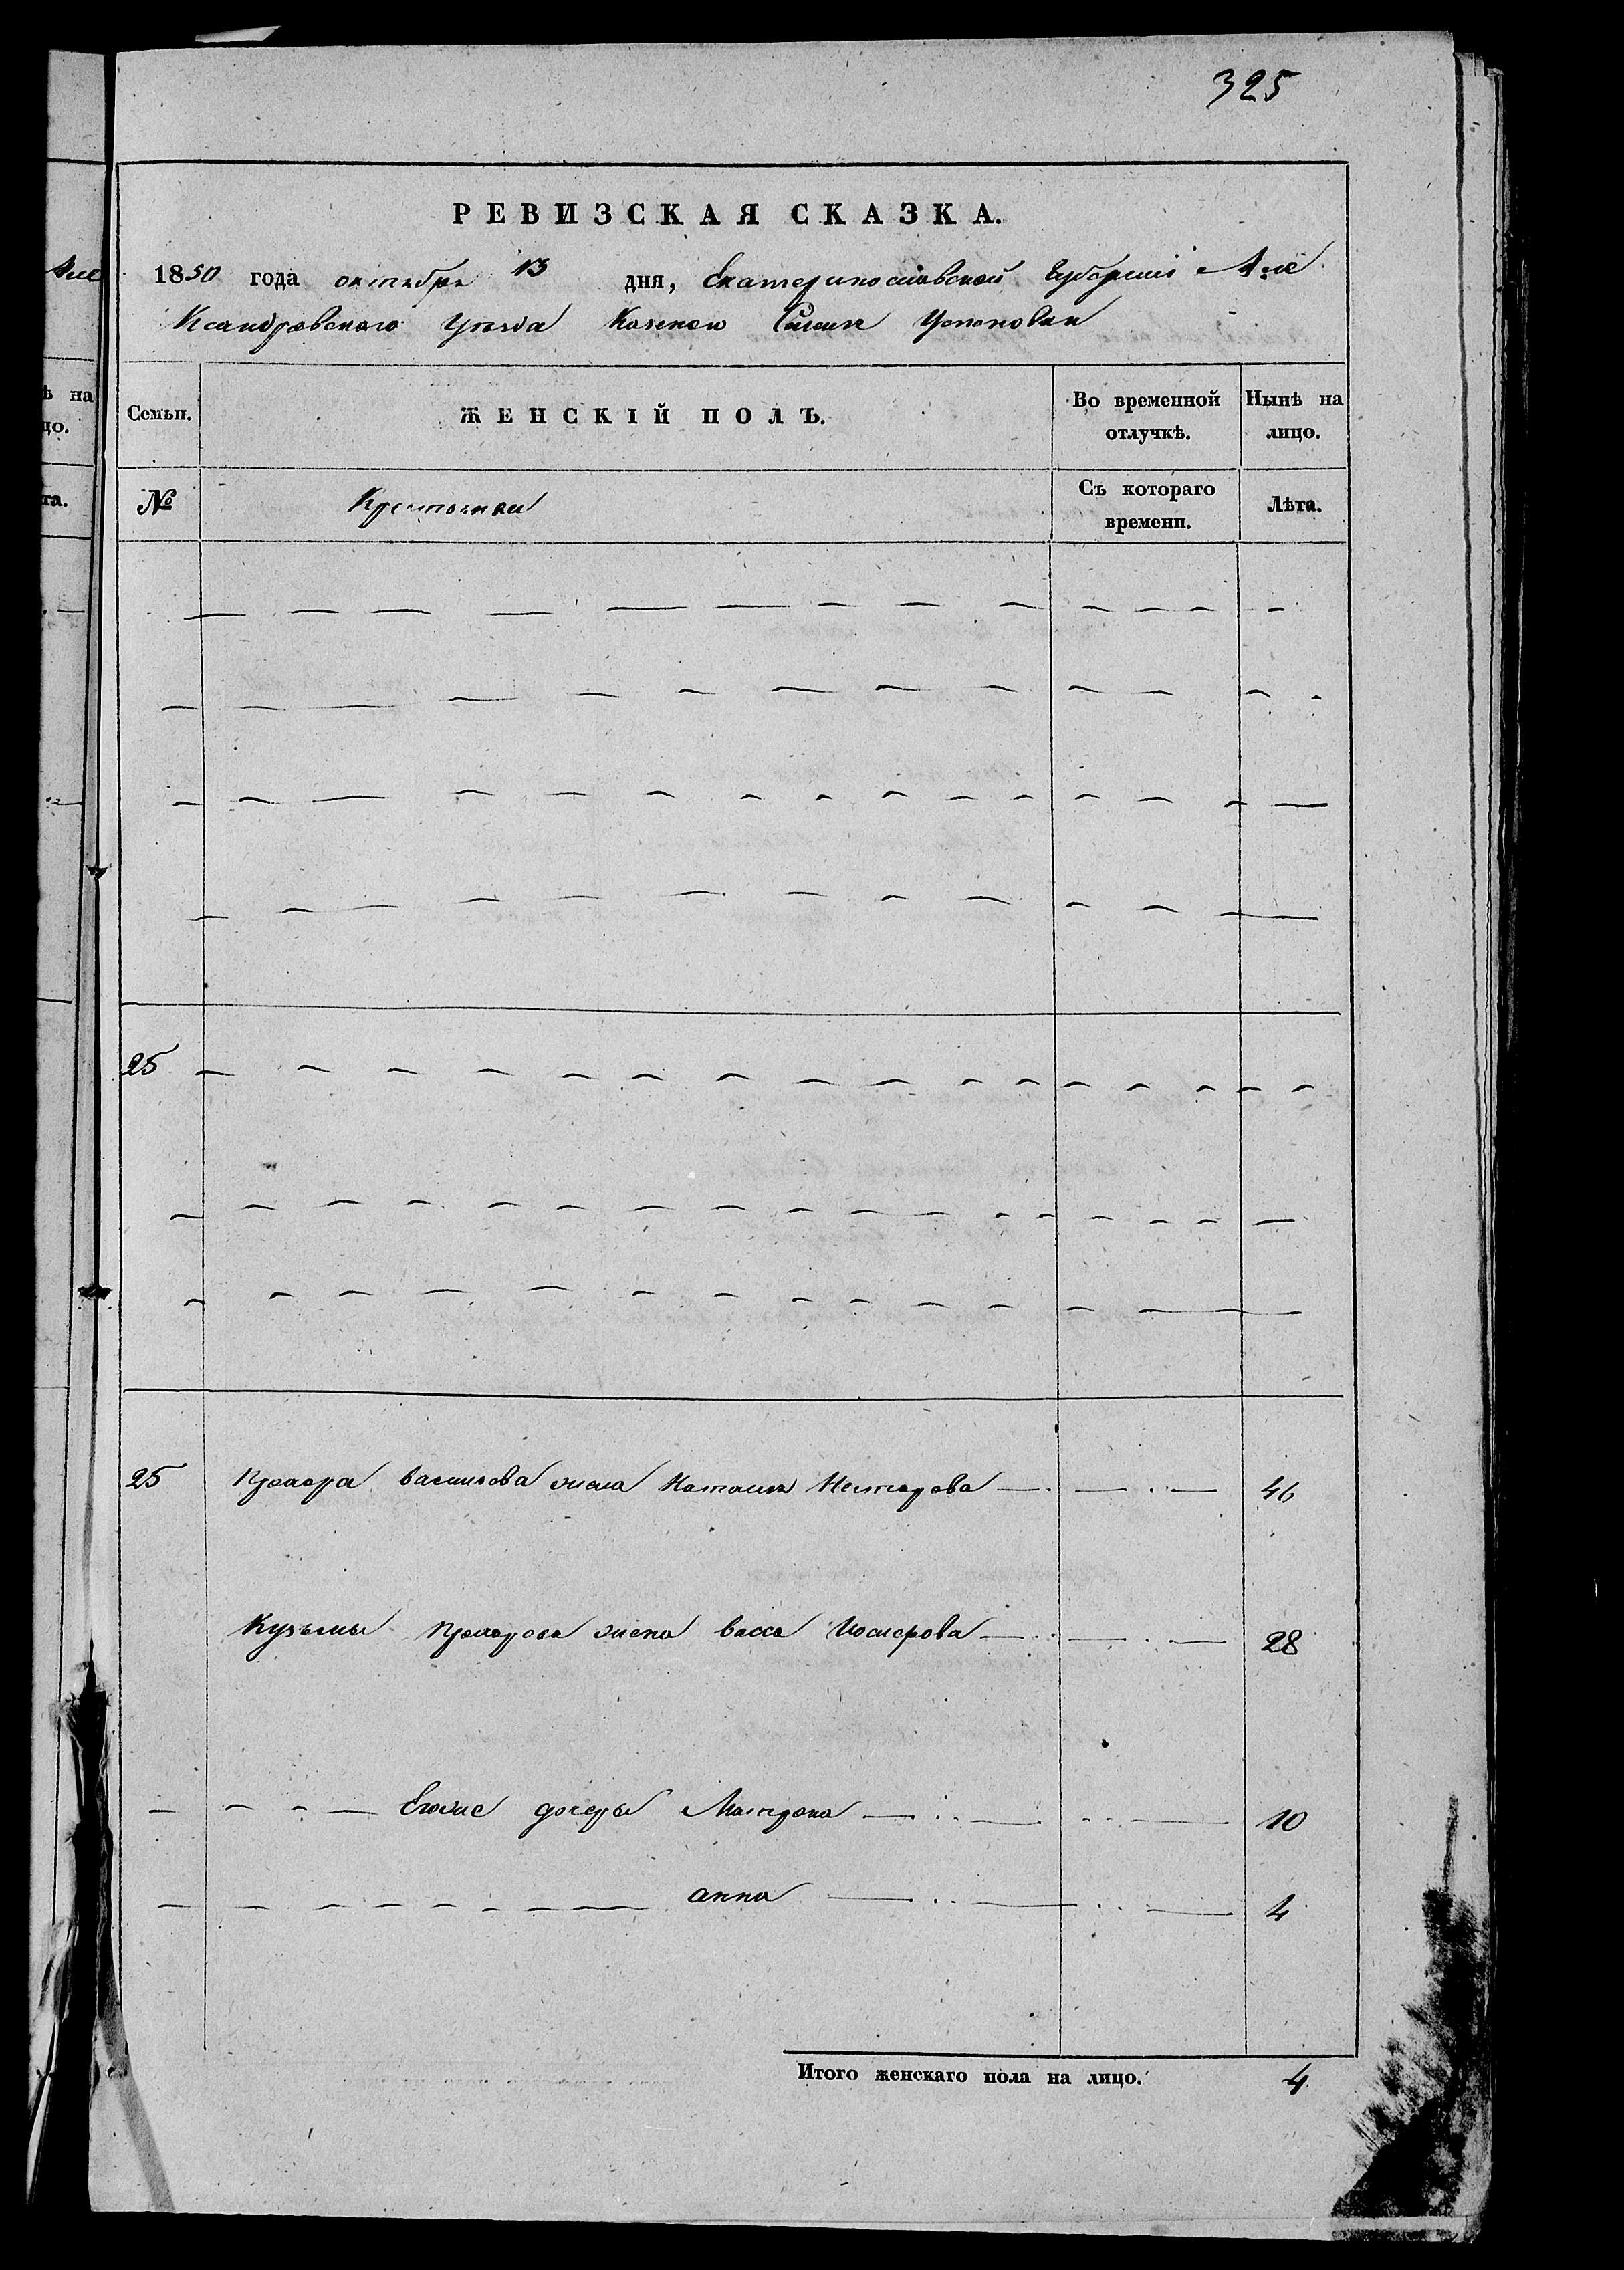 325
РЕВИЗСКАЯ СКАЗКА.
1850 года октября 13 дня, Екатеринославской Губернии Але
Ксандровскаго Уезда Казеной Селенія Успеновки
Семьи. ЖЕНСКІЙ ПОЛЪ. Во временной отлучкѣ. Нынѣ на лицо.
№ Крестьянки Съ котораго времени. Лѣта.
25
25 Прохора васильева жена Наталия Нестерова 46
Кузьмы Прохорова жена васса 28
Егоже дочери Матрона 10
анна 4
Итого женскаго пола на лицо. 4
Але
ѣ на
цо.
та.